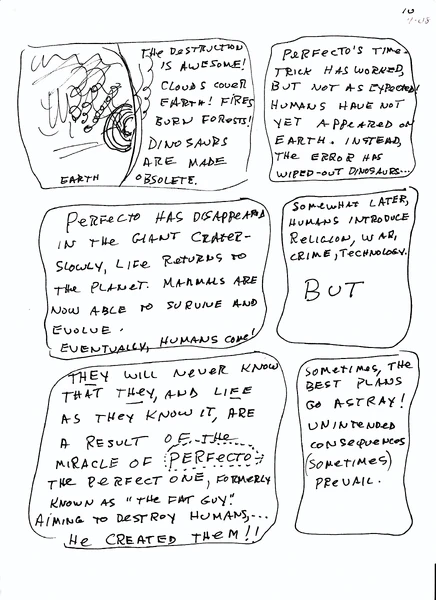 10
THE DESTRUCTION
IS AWESOME!
CLOUDS COVER
EARTH! FIRES
BURN FORESTS!
DINOSAURS
ARE MADE
OBSOLETE.
EARTH
PERFECTO'S TIME-
TRICK HAS WORKED,
BUT NOT AS EXPECTED!
HUMANS HAVE NOT
YET APPEARED ON
EARTH. INSTEAD,
THE ERROR HAS
WIPED-OUT DINOSAURS...
PERFECTO HAS DISAPPEARED
IN THE GIANT CRATER-
SLOWLY, LIFE RETURNS TO
THE PLANET. MAMMALS ARE
NOW ABLE TO SURVIVE AND
EVOLVE.
EVENTUALLY, HUMANS COME!
SOMEWHAT LATER,
HUMANS INTRODUCE
RELIGION, WAR,
CRIME, TECHNOLOGY.
BUT
THEY WILL NEVER KNOW
THAT THEY, AND LIFE
AS THEY KNOW IT, ARE
A RESULT OF THE
MIRACLE OF PERFECTO-
THE PERFECT ONE, FORMERLY
KNOWN AS "THE FAT GUY."
AIMING TO DESTROY HUMANS,...
HE CREATED THEM!!
SOMETIMES, THE
BEST PLANS
GO ASTRAY!
UNINTENDED
CONSEQUENCES
(SOMETIMES)
PREVAIL.